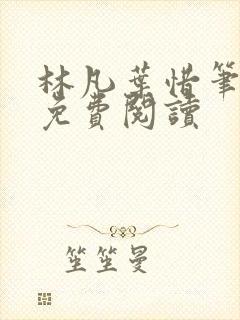 林凡葉惜筆
免費閱讀
笙笙曼